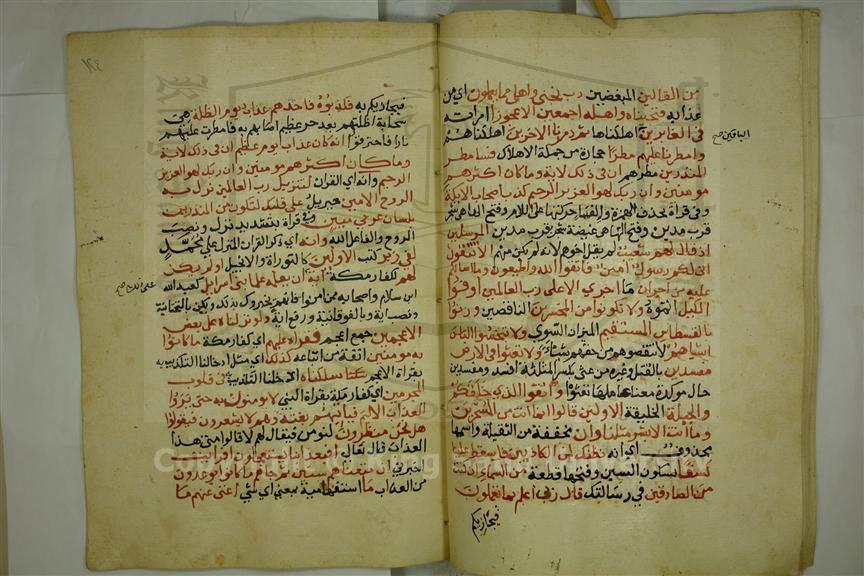 من القالين المبغضين رب نجني واهلي مما يعملون اي من
عذابه فنجيناه واهله اجمعين الا عجوزا امراته
في الغابرين الباقين اهلكناها ثم دمرنا الاخرين اهلكناهم
وامطرنا عليهم مطرا حجارة من جملة الاهلاك فساء مطر
المنذرين مطرهم ان في ذلك لاية وما كان اكثرهم
مومنين وان ربك لهو العزيز الرحيم كذب اصحاب الايكة
وفي قراة بحذف الهمزة والقاء حركتها على اللام وفتح الهاء هي غيضة شجر
قرب مدين المرسلين
اذ قال لهم شعيب لم يقل اخوهم لانه لم يكن منهم الا تتقون
اني لكم رسول امين فاتقوا الله واطيعون وما اسالكم
عليه من اجر ان ما اجري الا على رب العالمين اوفوا
الكيل اتموه ولا تكونوا من المخسرين الناقصين وزنوا
بالقسطاس المستقيم الميزان السوي ولا تبخسوا الناس
اشياهم لا تنقصوهم من حقهم شيئا ولا تعثوا في الارض
مفسدين بالقتل وغيره من عثي بكسر المثلثة افسد ومفسدين
حال موكدة لمعنى عاملها تعثوا واتقوا الذي خلقكم
والجبلة الخليقة الاولين قالوا انما انت من المسحرين
وما انت الا بشر مثلنا وان مخففة من الثقيلة واسمها
محذوف اي انه نظنك لمن الكاذبين فاسقط علينا
كسفا بسكون السين وفتحها قطعة من السماء ان كنت
من الصادقين في رسالتك قال ربي اعلم بما تعملون
فيجازيكم
الباقين صح
فيجازيكم به فكذبوه فاخذهم عذاب يوم الظلة هي
سحابة اظلتهم بعد حر عظيم اصابهم به فامطرت عليهم
نارا فاحترقوا انه كان عذاب يوم عظيم ان في ذلك لاية
وما كان اكثرهم مومنين وان ربك لهو العزيز
الرحيم وانه اي القران لتنزيل رب العالمين نزل به
الروح الامين جبريل على قلبك لتكون من المنذرين
بلسان عربي مبين وفي قراة بتشديد نزل ونصب
الروح والفاعل الله وانه اي ذكر القران المنزل على محمد
لفي زبر كتب الاولين كالتوراة والانجيل اولم يكن
لهم لكفار مكة اية ان يعلمه علما بني اسرايل كعبد الله
ابن سلام واصحابه ممن امنوا فانهم يخبرون بذلك ويكن بالتحتانية
ونصب اية وبالفوقانية ورفع اية ولو نزلناه على بعض
الاعجمين جمع اعجم فقراه عليهم اي كفار مكة ما كانوا
به مومنين انفة من اتباعه كذلك اي مثل ادخالنا التكذيب به
بقراة الاعجم سلكناه ادخلنا التكذيب به في قلوب
المجرمين اي كفار مكة بقراة النبي لا يومنون به حتى يروا
العذاب الاليم فياتيهم بغتة وهم لا يشعرون فيقولوا
هل نحن منظرون لنومن فيقال لهم لا قالوا متى هذا
العذاب قال تعالى افبعذابنا يستعجلون افرايت
اخبرني ان متعناهم سنين ثم جاهم ما كانوا يوعدون
من العذاب ما استفهامية بمعنى اي شي اغنى عنهم ما